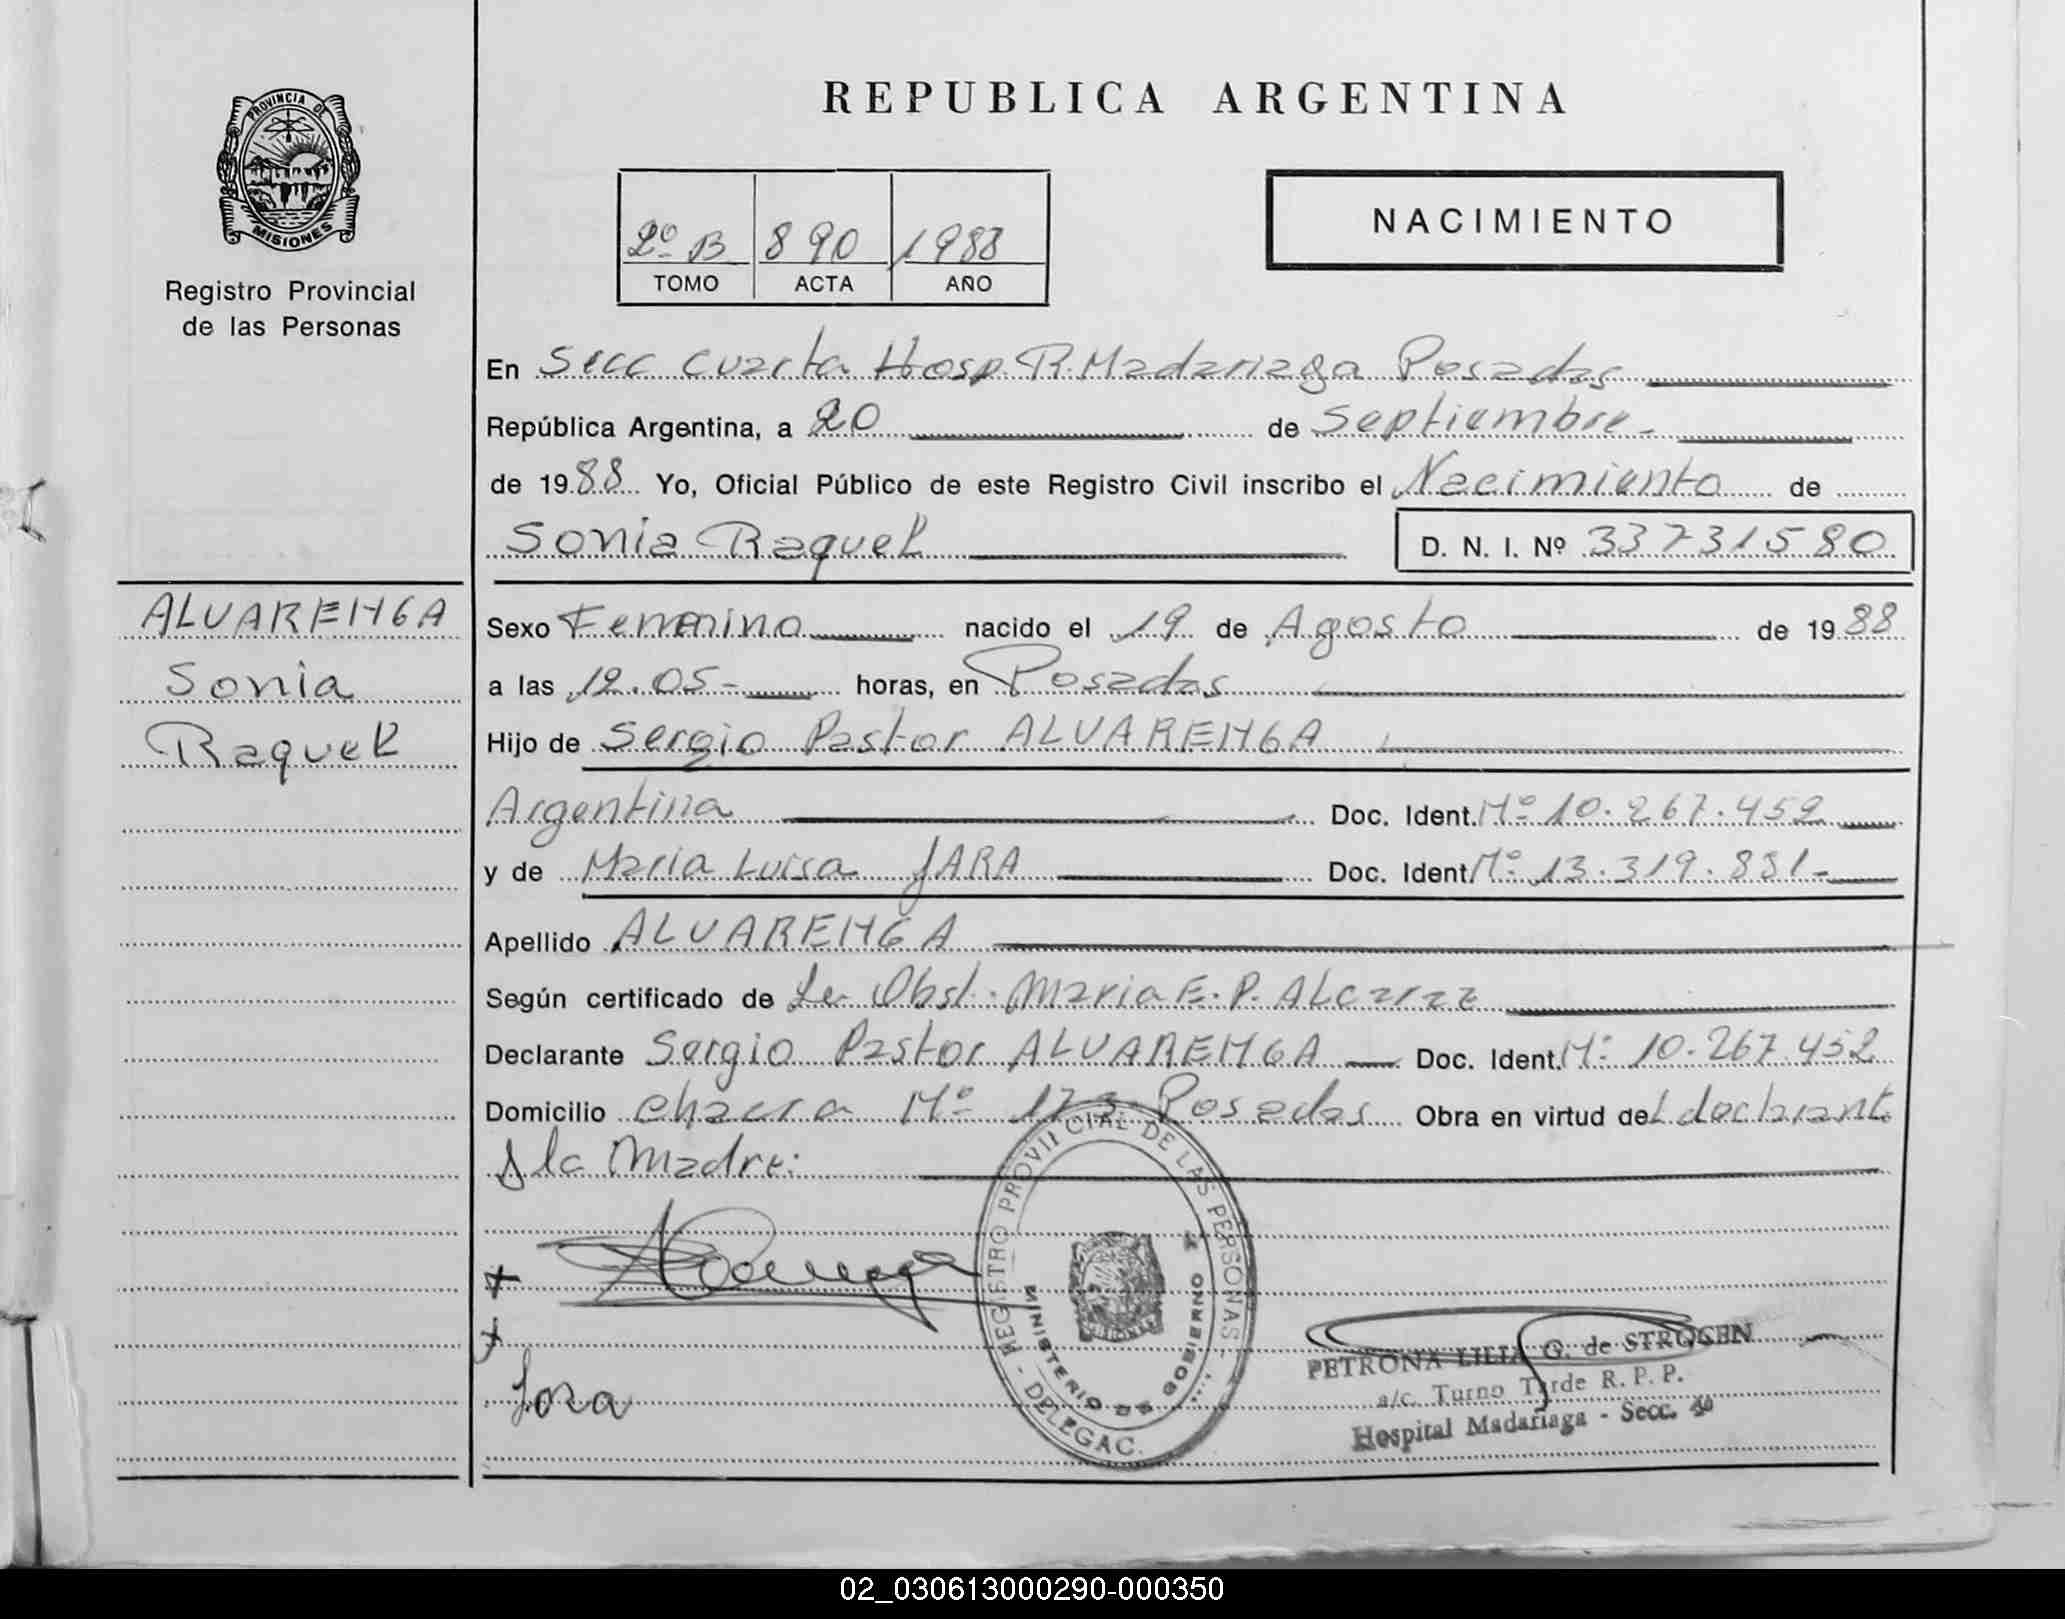 PROVINCIA DE
MISIONES
Registro Provincial
de las Personas
REPUBLICA ARGENTINA
2º B 890 1988
TOMO ACTA AÑO
NACIMIENTO
En Secc Cuarta Hosp R. Madariaga Posadas
República Argentina, a 20 de Septiembre.
de 1988 Yo, Oficial Público de este Registro Civil inscribo el Nacimiento de
Sonia Raquel D. N. I. Nº 33731580
ALVARENGA
Sonia
Raquel
Sexo Femenino nacido el 19 de Agosto de 1988
a las 12.05- horas, en Posadas
Hijo de Sergio Pastor ALVARENGA
Argentina Doc. Ident. Nº 10.267.452
y de Maria Luisa JARA Doc. Ident Nº 13.319.831-
Apellido ALVARENGA
Según certificado de Le Obst. Maria E. P. ALcaraz
Declarante Sergio Pastor ALVARENGA Doc. Ident. Nº 10.267.452
Domicilio chacra Nº 173 Posadas Obra en virtud del declarant.
y la Madre:
REGISTRO PROVINCIAL DE LAS PERSONAS - DELEGAC.
MINISTERIO DE GOBIERNO
Jara
PETRONA LILIA G. de STROGEN
a/c. Turno Tarde R. P. P.
Hospital Madariaga - Secc. 4º
02_030613000290-000350